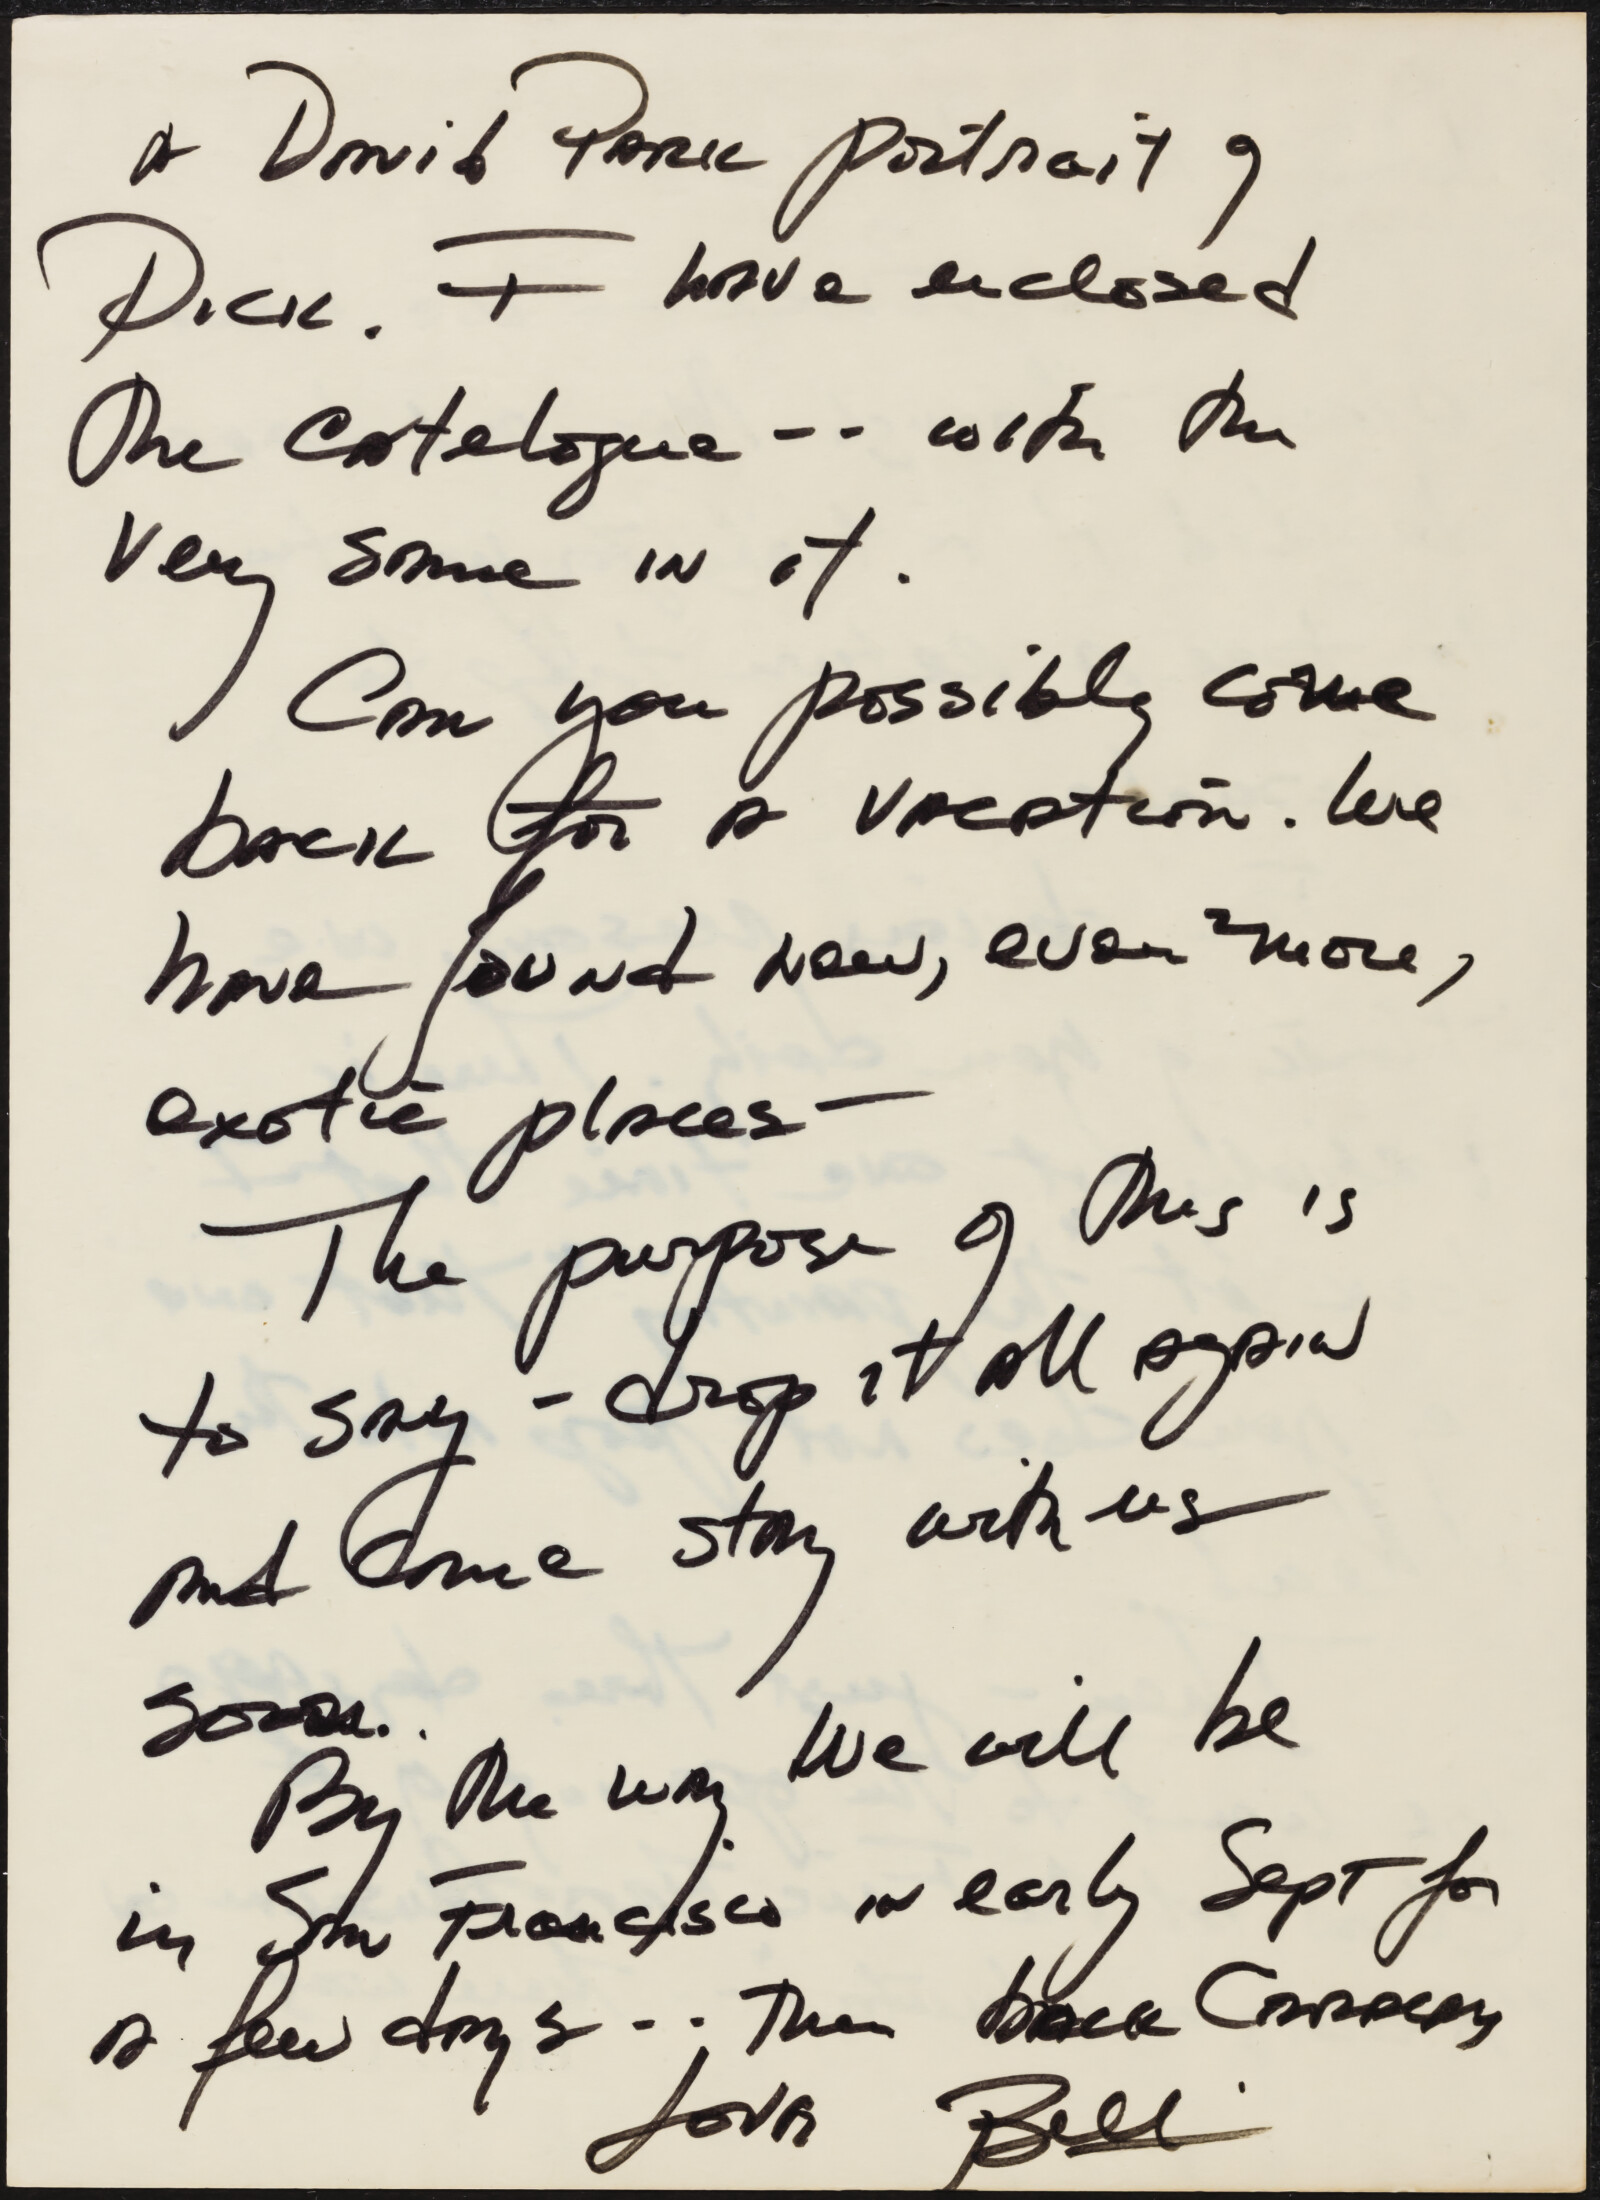 a David Park portrait of
Dick. I have enclosed
the catalogue -- with the
very same in it.
Can you possibly come
back for a vacation. We
have found new, even more,
exotic places —
The purpose of this is
to say - drop it all again
and come stay with us —
soon..
By the way we will be
in San Francisco in early Sept for
a few days -- then back Caracas
Love Bill